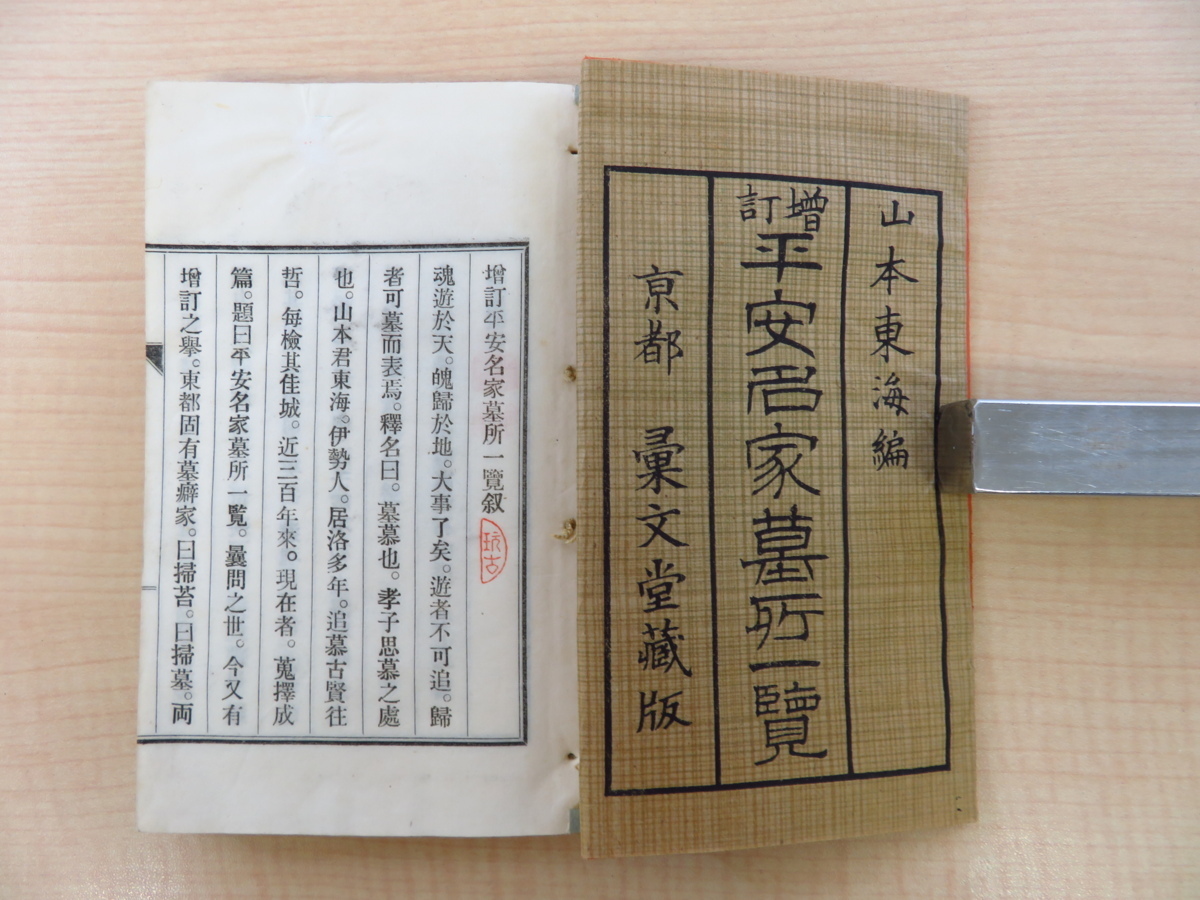 山本東海編
增訂平安名家墓所一覽
京都 彙文堂藏版
增訂平安名家墓所一覽叙
玩古
魂遊於天。魄歸於地。大事了矣。遊者不可追。歸
者可墓而表焉。釋名曰。墓慕也。孝子思慕之處
也。山本君東海。伊勢人。居洛多年。追慕古賢往
哲。每檢其佳城。近三百年來。現在者。蒐擇成
篇。題曰平安名家墓所一覽。曩問之世。今又有
增訂之擧。東都固有墓癖家。曰掃苔。曰掃墓。兩